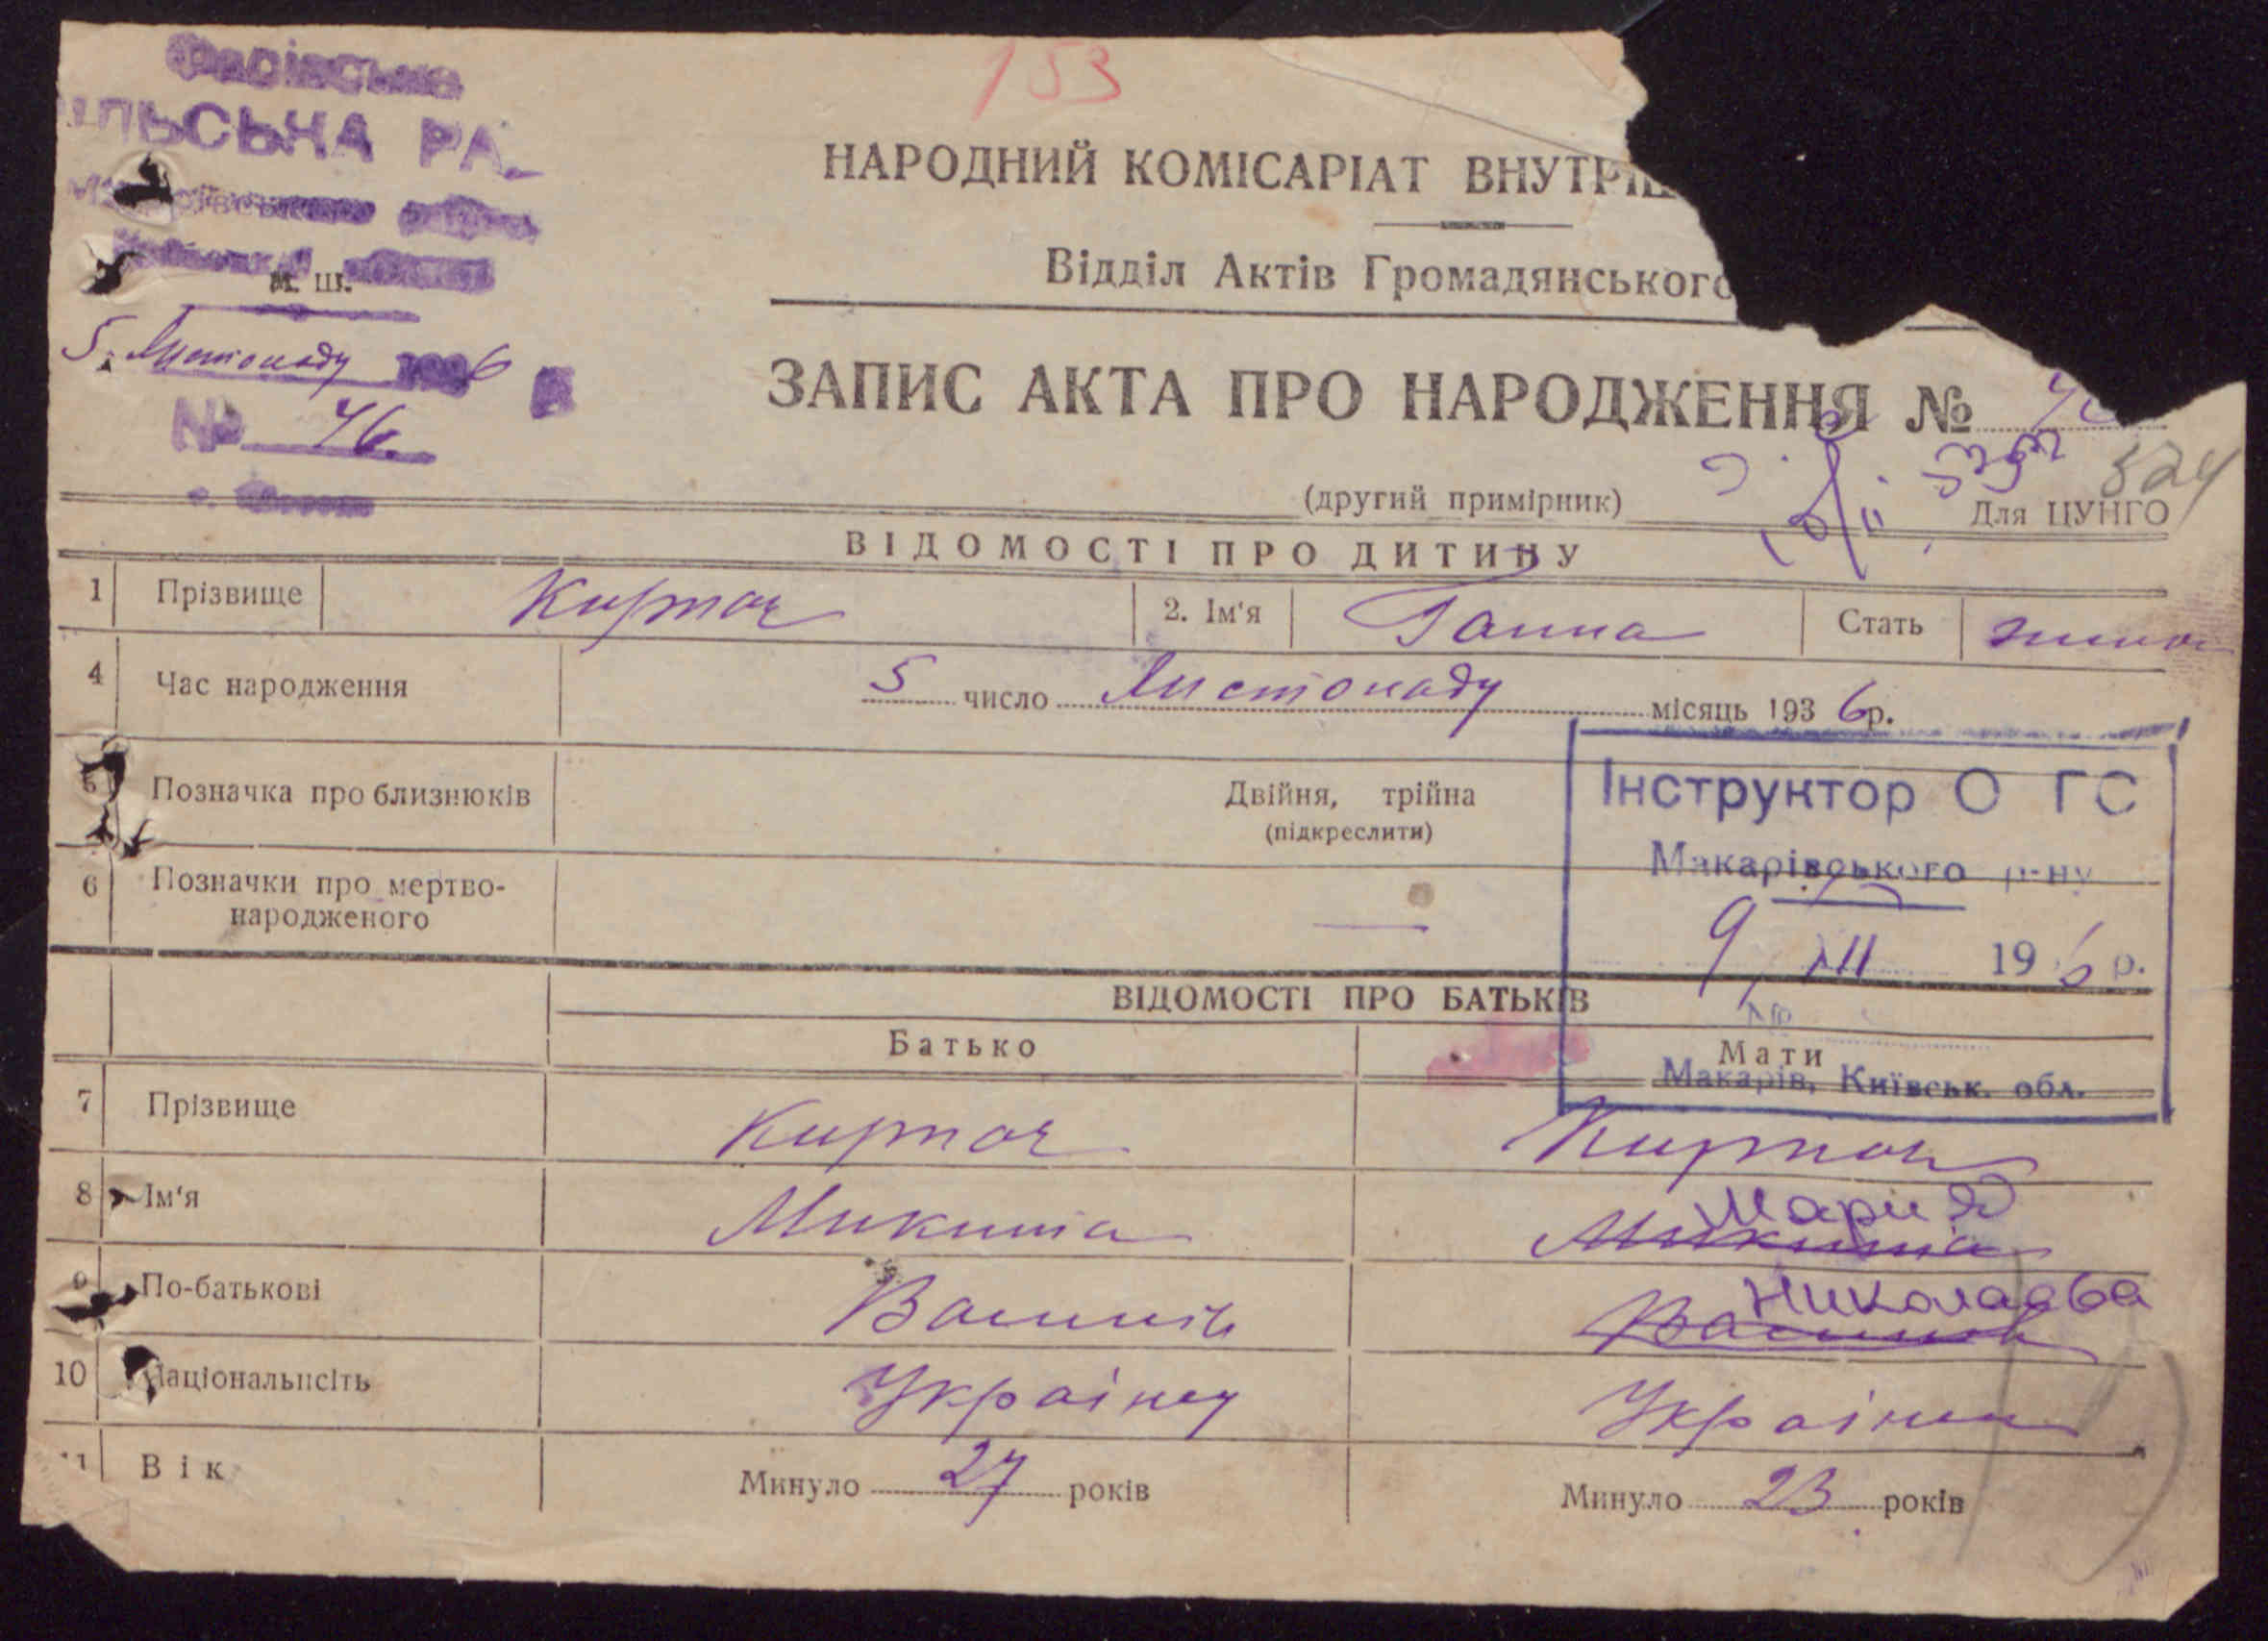 153
ІЛЬСЬНА РА
НАРОДНИЙ КОМІСАРІАТ ВНУТРІШ
Відділ Актів Громадянського
М. Ш.
5 Листопаду 6
№ 46.
ЗАПИС АКТА ПРО НАРОДЖЕННЯ №
524
(другий примірник)
Для ЦУНГО
ВІДОМОСТІ ПРО ДИТИНУ
1 Прізвище Кирточ 2. Ім'я Ганна Стать
4 Час народження 5 число Листопаду місяць 1936р.
5 Позначка про близнюків Двійня, трійна
(підкреслити)
6 Позначки про мертво-
народженого
Інструктор О ГС
Макарівського р-ну
9 XII 19 6 р.
№
Макарів, Київськ. обл.
ВІДОМОСТІ ПРО БАТЬКІВ
Батько Мати
7 Прізвище Кирточ Кирточ
8 Ім'я Микита Микита Мария
9 По-батькові Василів Василів
10 Національність Українец Українка
11 Вік Минуло 27 років Минуло 23 років